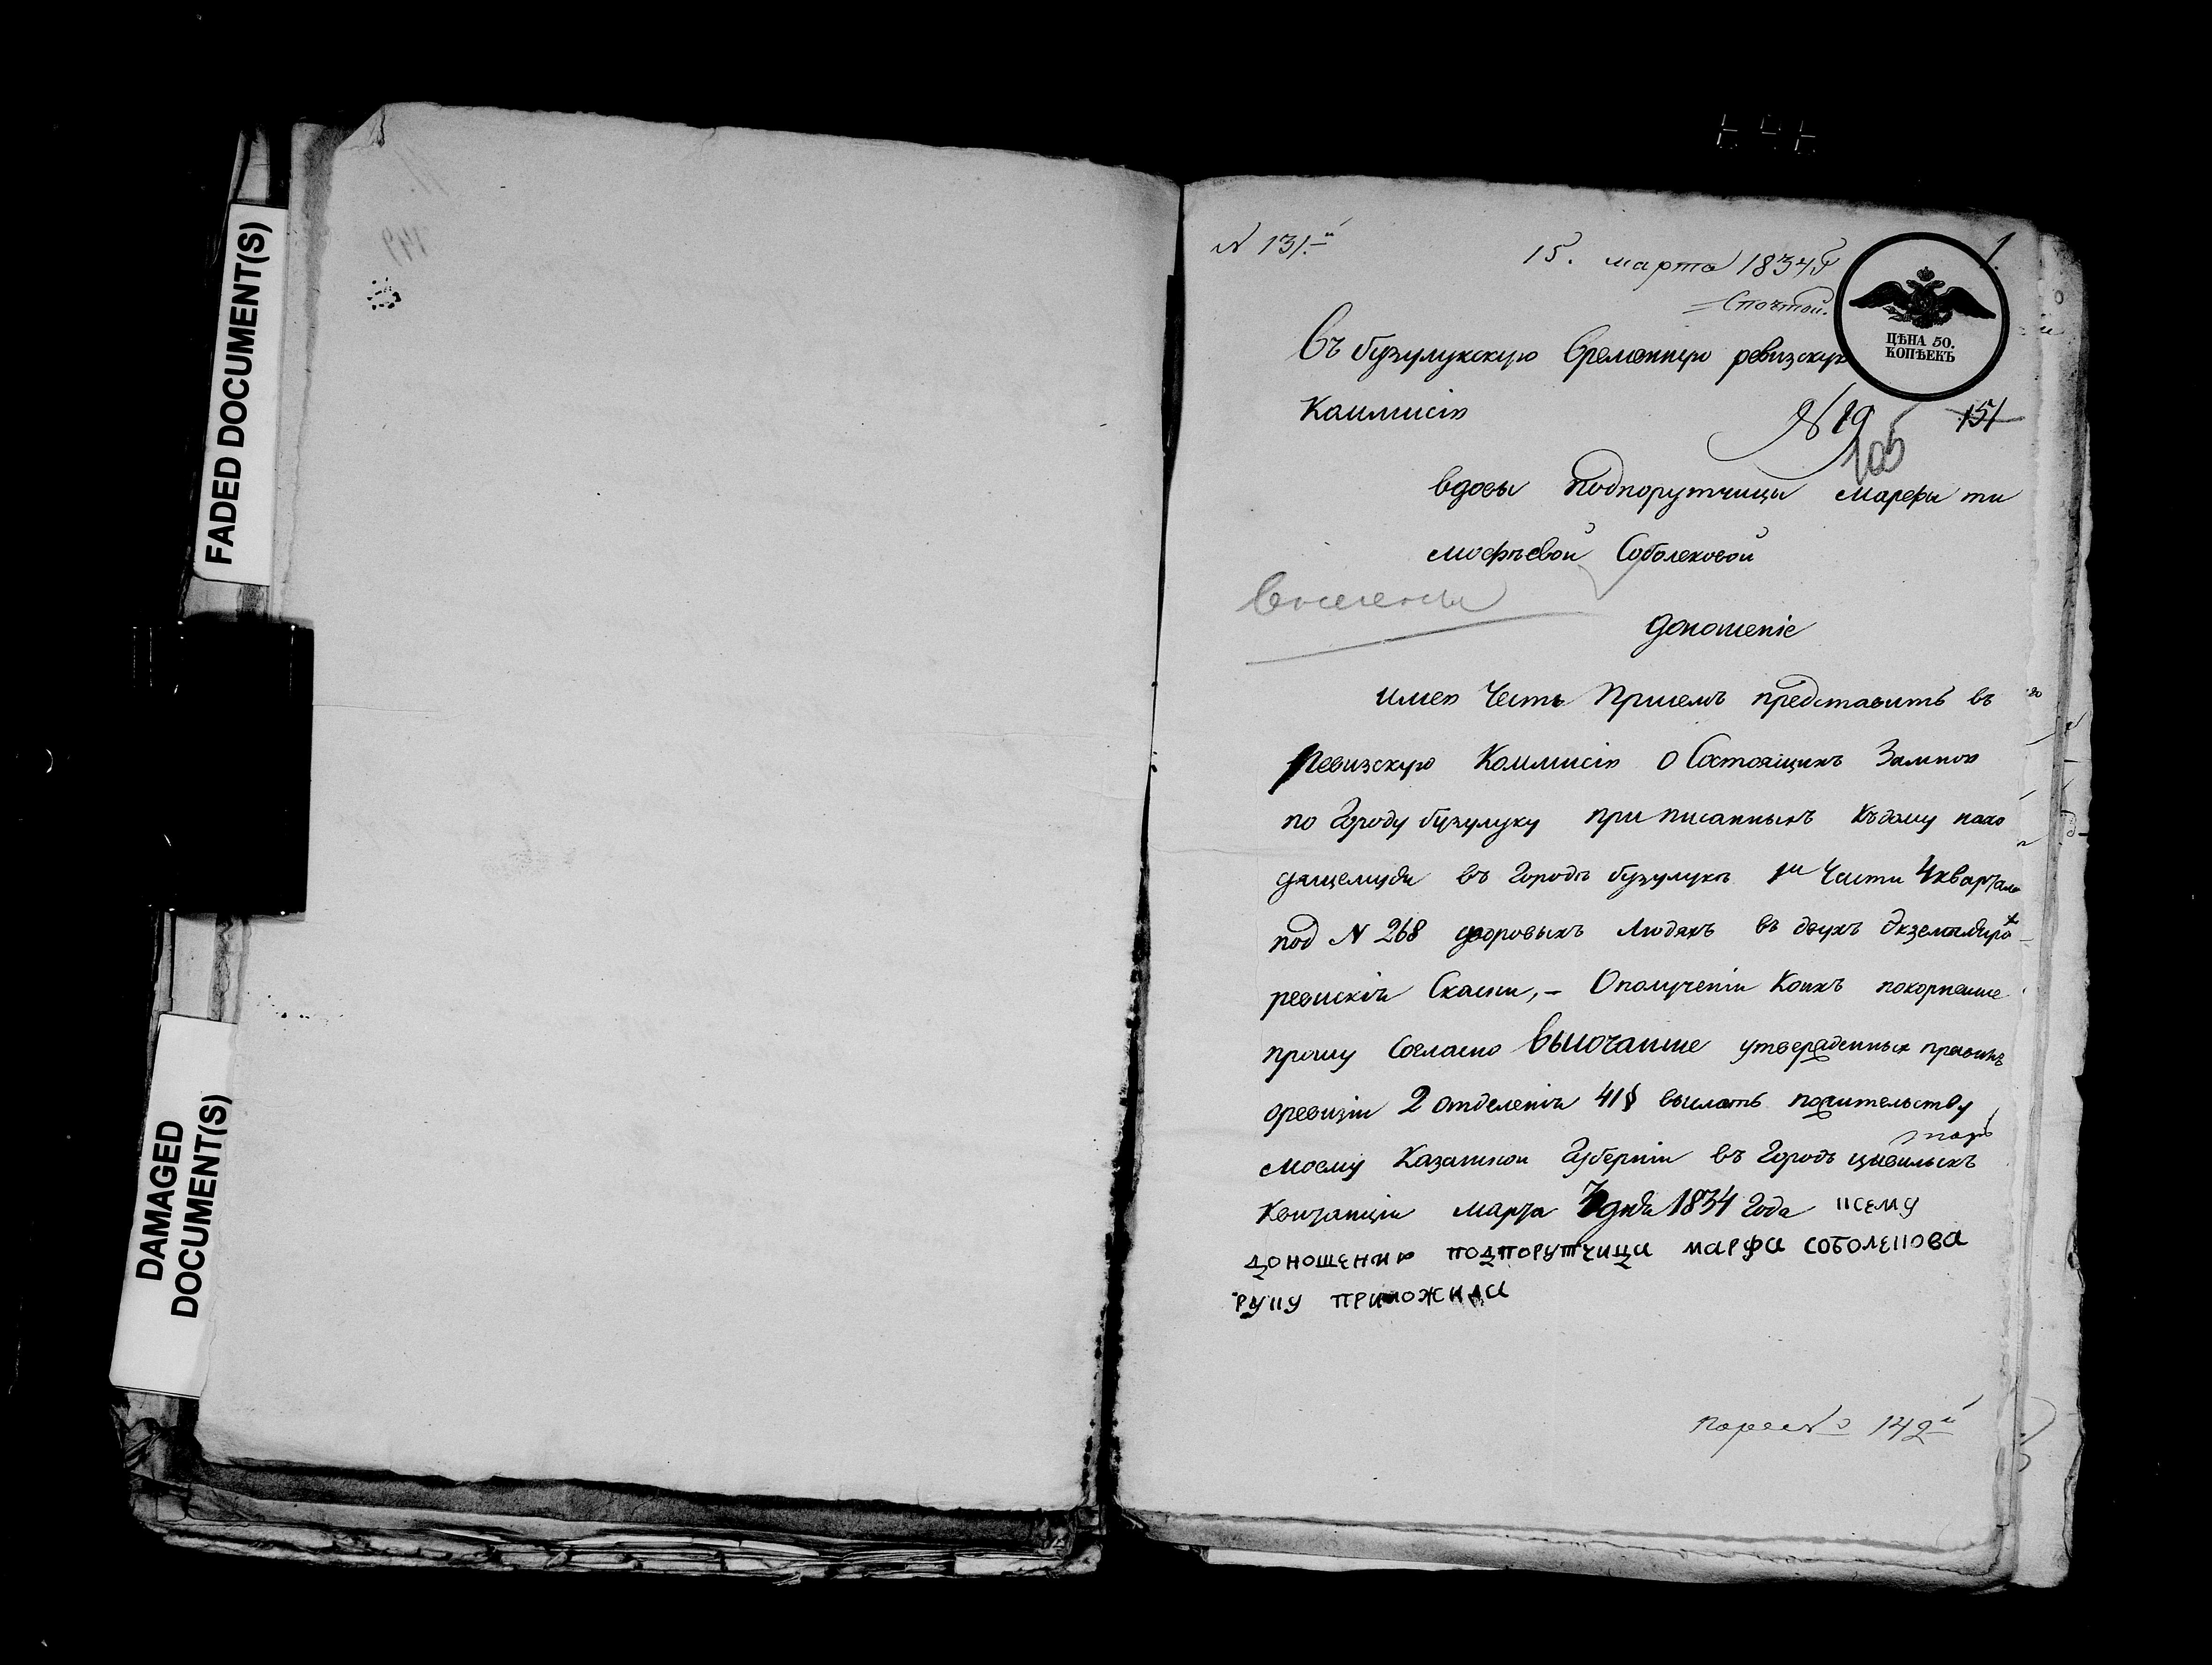 FADED DOCUMENT(S)
DAMAGED
DOCUMENT(S)
149
N 131.й
15. марта 1834
Спочтой.
1.
ЦѢНА 50.
КОПѢЕКЪ
Въ бузулукскую временную ревизскую
Коммисію
N 19
151
105
вдовы Подпорутчицы марфы ти
мофѣевой Соболековой
доношеніе
имею Честь Присемъ представить въ
Ревизскую Коммисію О Состоящихъ Замною
по Городу бузулуку приписанныхъ Къдому нахо
дящемуся въ Городѣ бузулукѣ 1й Части 4 квартала
под N 268 дворовыхъ Людяхъ въ двухъ Экземплярах
ревискія Скаски,– Ополученіи Коихъ покорнеише
прошу Согласно высочаише утвержденных правилъ
оревизіи 2 отделенія 41§ выслать пожительству
моему Казанской Губерніи въ Городъ цывильскъ
Квитанцію марта 7 дня 1834 Года ксему
доношению подпорутчица марфа соболекова
руку приложила
142й